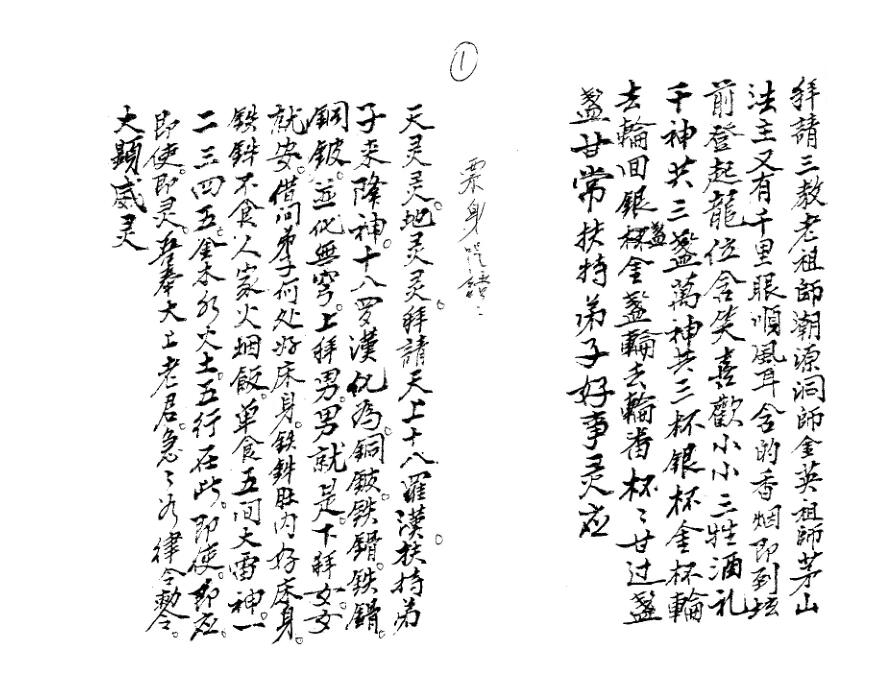 拜請三教老祖師潮源洞師金英祖師茅山
法主又有千里眼順風耳含的香烟即到坛
前登起龍位含笑喜歡小小三牲酒礼
千神共三盞萬神共三杯銀杯金杯輪
去輪回銀杯盞金盞輪去輪番杯〻甘过盞
盞甘常扶持弟子好事灵应
①
罡身咒語〻
天灵灵。地灵灵。拜請天上十八羅漢。扶持弟
子来降神。十八罗漢化為。銅鈸铁鎖。铁鎖。
銅鈸。並化無穷。上拜男。男就是。下拜女。女
就安。借问弟子何处好床身。铁鉎肚内好床身。
铁鉎不食人家火烟飯。单食五间大雷神。一
二三四五。金木水火土。五行在此。即使。即应。
即使。即灵。吾奉太上老君。急〻如律令勅令。
大顯威灵